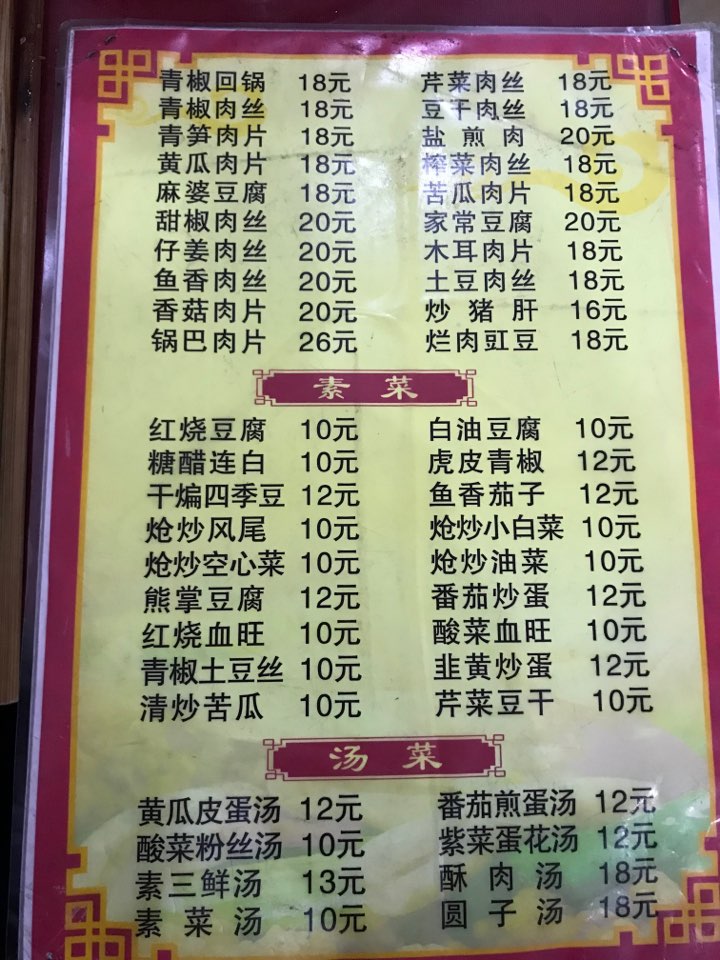 青椒回锅 18元 芹菜肉丝 18元
青椒肉丝 18元 豆干肉丝 18元
青笋肉片 18元 盐煎肉 20元
黄瓜肉片 18元 榨菜肉丝 18元
麻婆豆腐 18元 苦瓜肉片 18元
甜椒肉丝 20元 家常豆腐 20元
仔姜肉丝 20元 木耳肉片 18元
鱼香肉丝 20元 土豆肉丝 18元
香菇肉片 20元 炒猪肝 16元
锅巴肉片 26元 烂肉豇豆 18元
素菜
红烧豆腐 10元 白油豆腐 10元
糖醋连白 10元 虎皮青椒 12元
干煸四季豆 12元 鱼香茄子 12元
炝炒风尾 10元 炝炒小白菜 10元
炝炒空心菜 10元 炝炒油菜 10元
熊掌豆腐 12元 番茄炒蛋 12元
红烧血旺 10元 酸菜血旺 10元
青椒土豆丝 10元 韭黄炒蛋 12元
清炒苦瓜 10元 芹菜豆干 10元
汤菜
黄瓜皮蛋汤 12元 番茄煎蛋汤 12元
酸菜粉丝汤 10元 紫菜蛋花汤 12元
素三鲜汤 13元 酥肉汤 18元
素菜汤 10元 圆子汤 18元